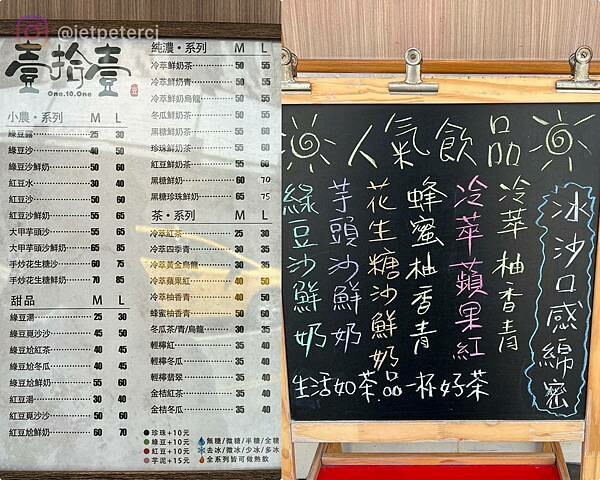 @jetpetercj
壹拾壹
One.10.One
小農·系列 M L
綠豆露 25 30
綠豆沙 40 50
綠豆沙鮮奶 50 60
紅豆水 30 40
紅豆沙 50 60
紅豆沙鮮奶 55 65
大甲芋頭沙 55 65
大甲芋頭沙鮮奶 65 85
手炒花生糖沙 60 75
手炒花生糖鮮奶 70 85
甜品 M L
綠豆湯 25 30
綠豆覓沙沙 45 50
綠豆尬紅茶 40 45
綠豆尬冬瓜 40 45
綠豆尬鮮奶 55 60
紅豆湯 30 40
紅豆覓沙沙 50 60
紅豆尬鮮奶 60 70
純濃·系列 M L
冷萃鮮奶茶 50 55
冷萃鮮奶青 50 55
冷萃鮮奶烏龍 50 55
冬瓜鮮奶茶 50 55
黑糖鮮奶茶 55 60
珍珠鮮奶茶 55 60
紅豆鮮奶茶 55 60
黑糖鮮奶 60 70
黑糖珍珠鮮奶 65 75
茶·系列 M L
冷萃紅茶 25 30
冷萃四季青 25 30
冷萃黃金烏龍 30 35
冷萃蘋果紅 40 50
冷萃柚香青 40 50
蜂蜜柚香青 50 60
冬瓜茶/青/烏龍 30 35
輕檸紅 35 40
輕檸冬瓜 35 40
輕檸翡翠 35 40
金桔紅茶 35 40
金桔冬瓜 35 40
珍珠+10元
綠豆+10元
紅豆+10元
芋泥+15元
無糖/微糖/半糖/全糖
去冰/微冰/少冰/多冰
全系列皆可做熱飲
人氣飲品
冰沙口感綿密
冷萃柚香青
冷萃蘋果紅
蜂蜜柚香青
花生糖沙鮮奶
芋頭沙鮮奶
綠豆沙鮮奶
生活如茶品一杯好茶